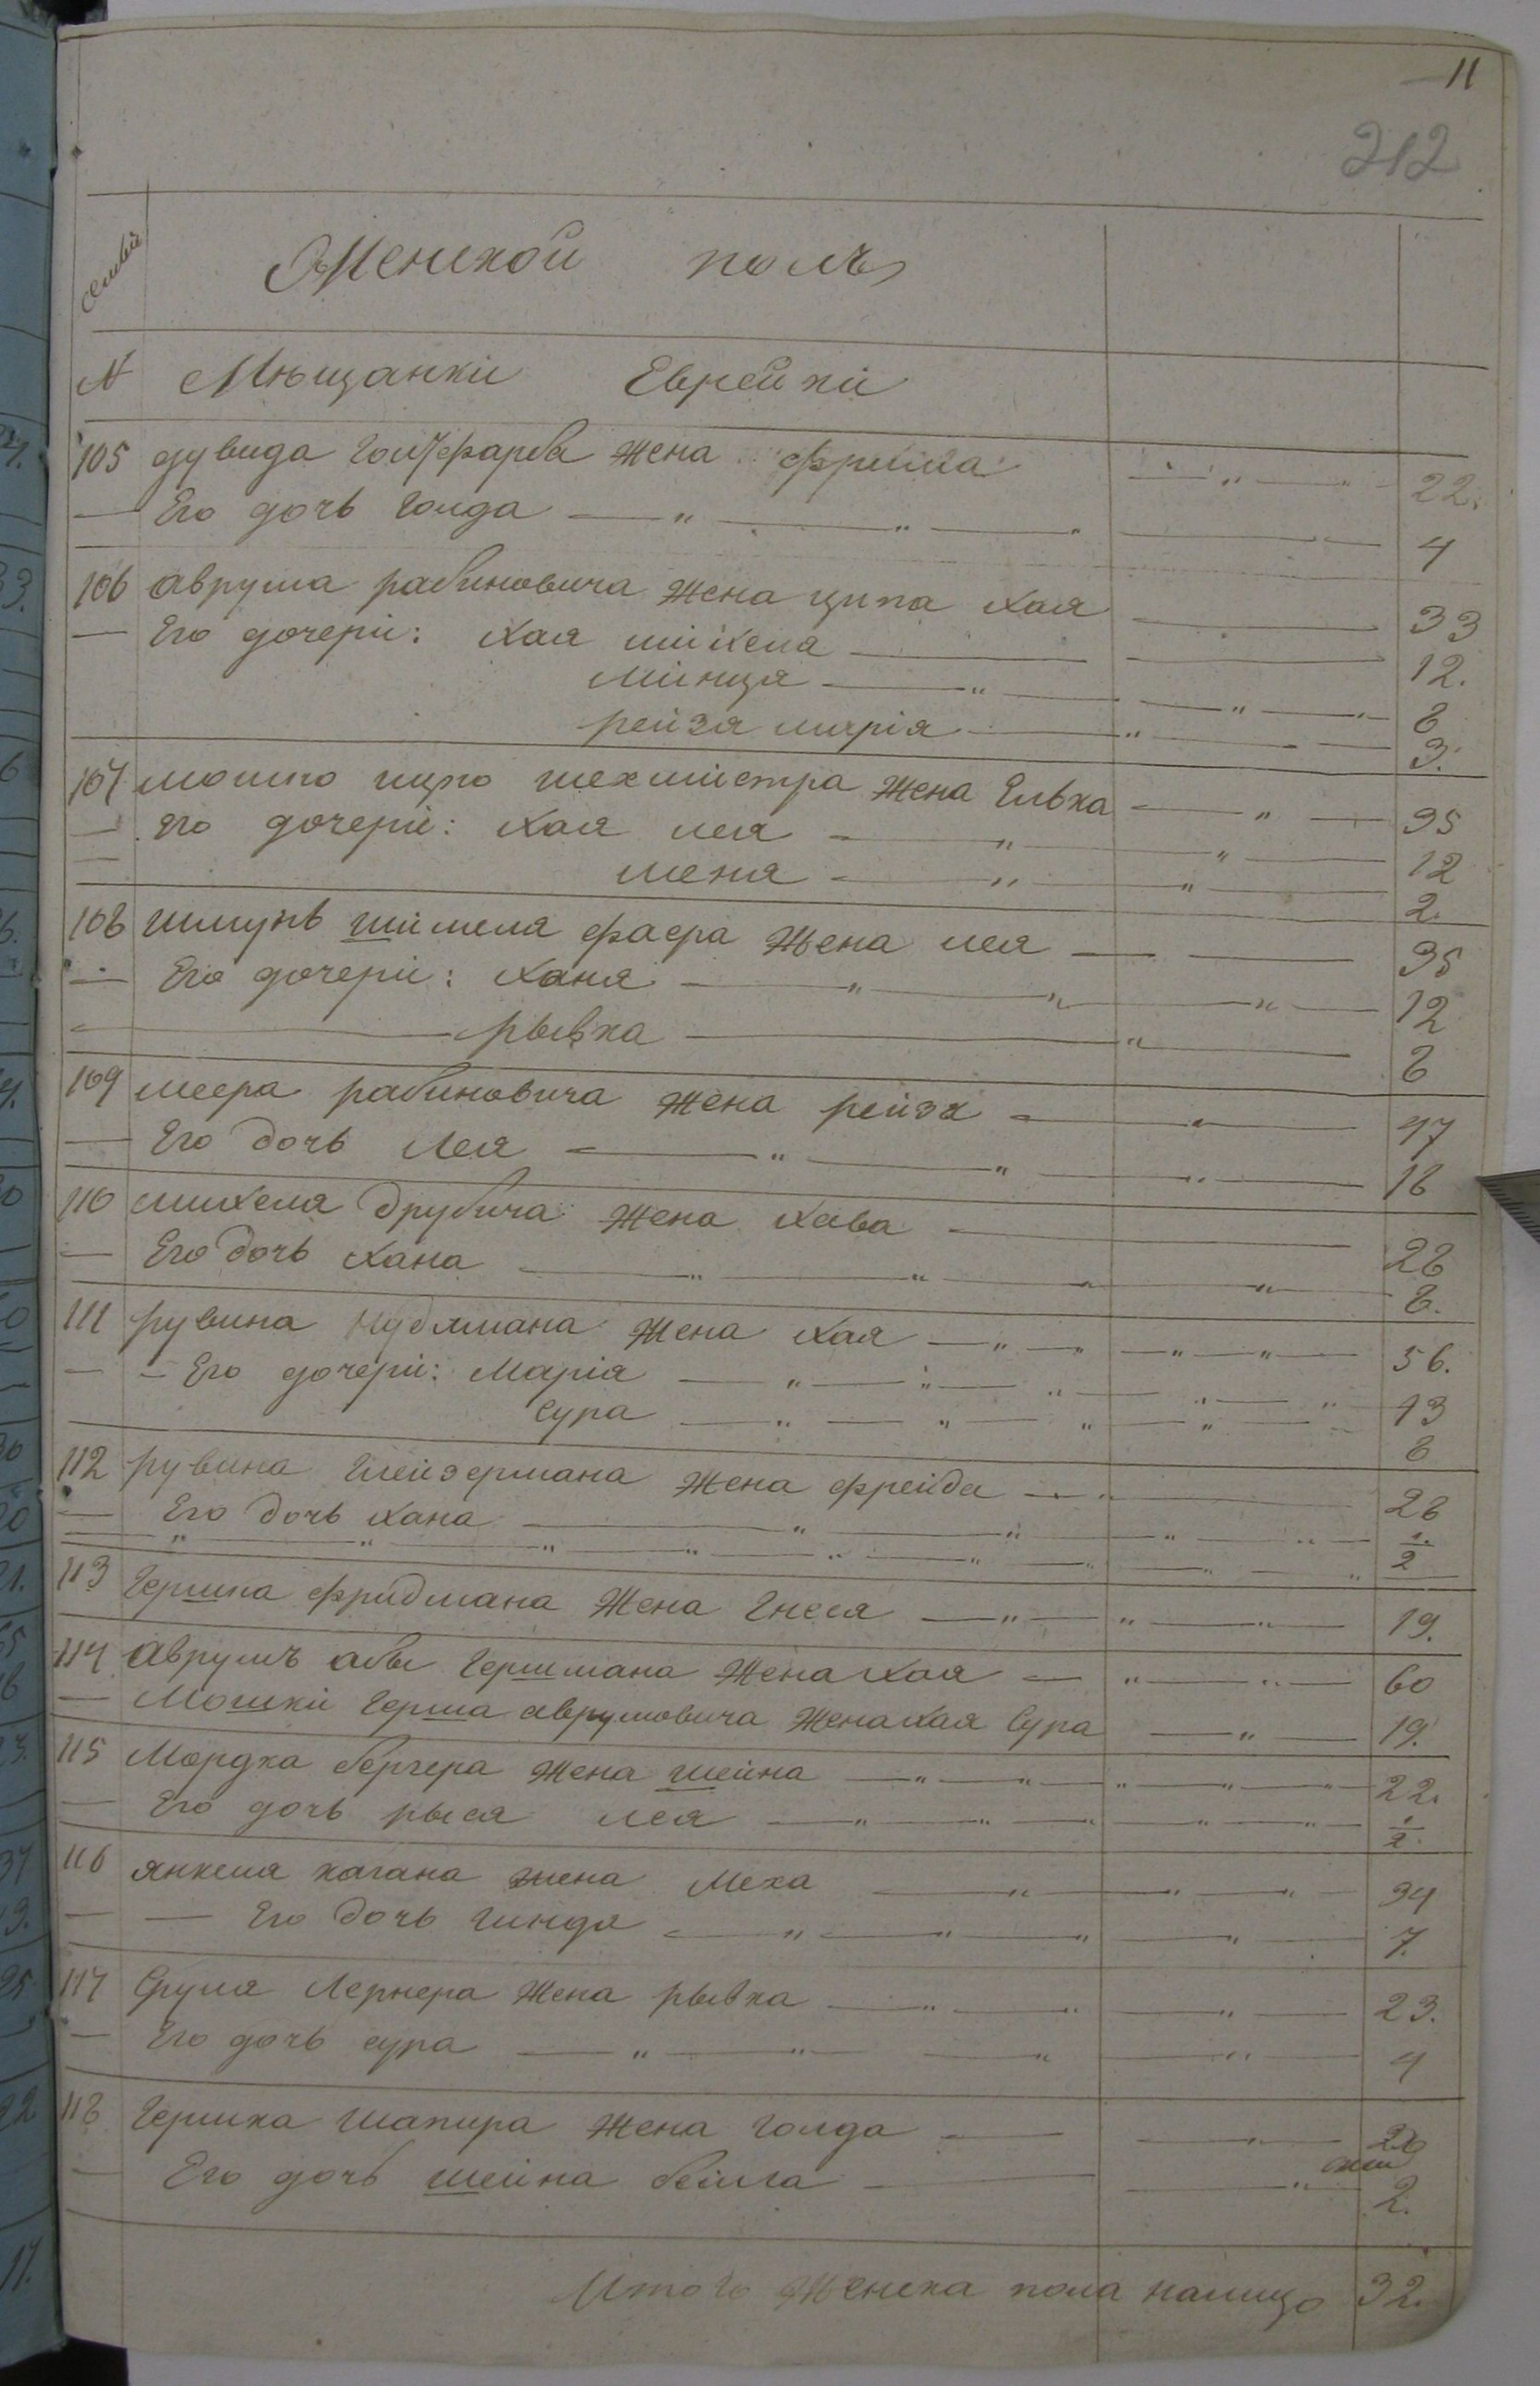 11
212
семьи
Женской полъ
N Мѣщанкіи Еврейкіи
105 дувида Голдфарба жена фрима 22.
Его дочь Голда 4
106 аврума рабиновича жена ципа хая 33
Его дочеріи: хая михеля 12.
Минця 8
рейзя марія 3.
107 мошко ицко шехмистра жена Елька 35
Его дочеріи: хая лея 12
шеня 2.
108 шмунь шимеля фаера жена лея 35
Его дочеріи: ханя 12
рывка 8
109 меера рабиновича жена рейзя 47
Его дочь Лея 18
110 михеля друбича жена хава 28
Его дочь хана 8.
111 рувина Нудлмана жена хая 56.
Его дочеріи: Марія 13
Сура 8
112 рувина Глейзермана жена фрейда 28
Его дочь хана 1/2
113 Гершка фридмана жена Гнеся 19.
114 аврумъ абы Гершмана жена хая 60
Мошкіи Герша аврумовича жена хая Сура 19.
115 Мордка бергера жена шейна 22.
Его дочь рыся лея 1/2.
116 янкеля кагана жена Меха 34
Его дочь Гиндя 7.
117 Сруля Лернера жена рывка 23.
Его дочь сура 4
118 Гершка шапира жена Голда
Его дочь шейна бейла 2.
Итого женска пола налицо 32.